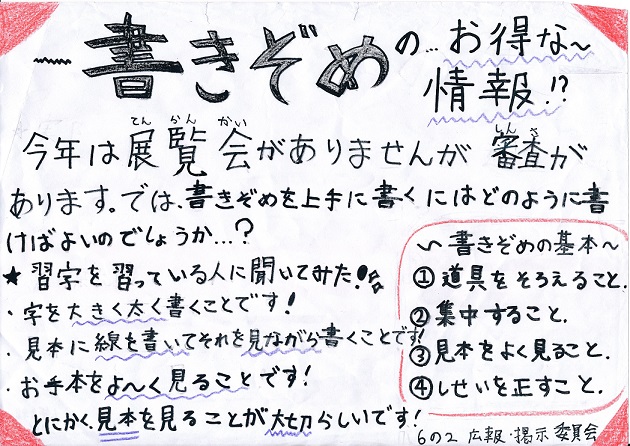 〜書きぞめの…お得な〜
情報!?
今年は展覧会がありませんが審査が
てんらんかい
しんさ
あります。では、書きぞめを上手に書くにはどのように書
けばよいのでしょうか…?
★習字を習っている人に聞いてみた!
・字を大きく太く書くことです!
・見本に線を書いてそれを見ながら書くことです!
・お手本をよ〜く見ることです!
とにかく、見本を見ることが大切らしいです!
〜書きぞめの基本〜
①道具をそろえること。
②集中すること。
③見本をよく見ること。
④しせいを正すこと。
6の2 広報・掲示委員会